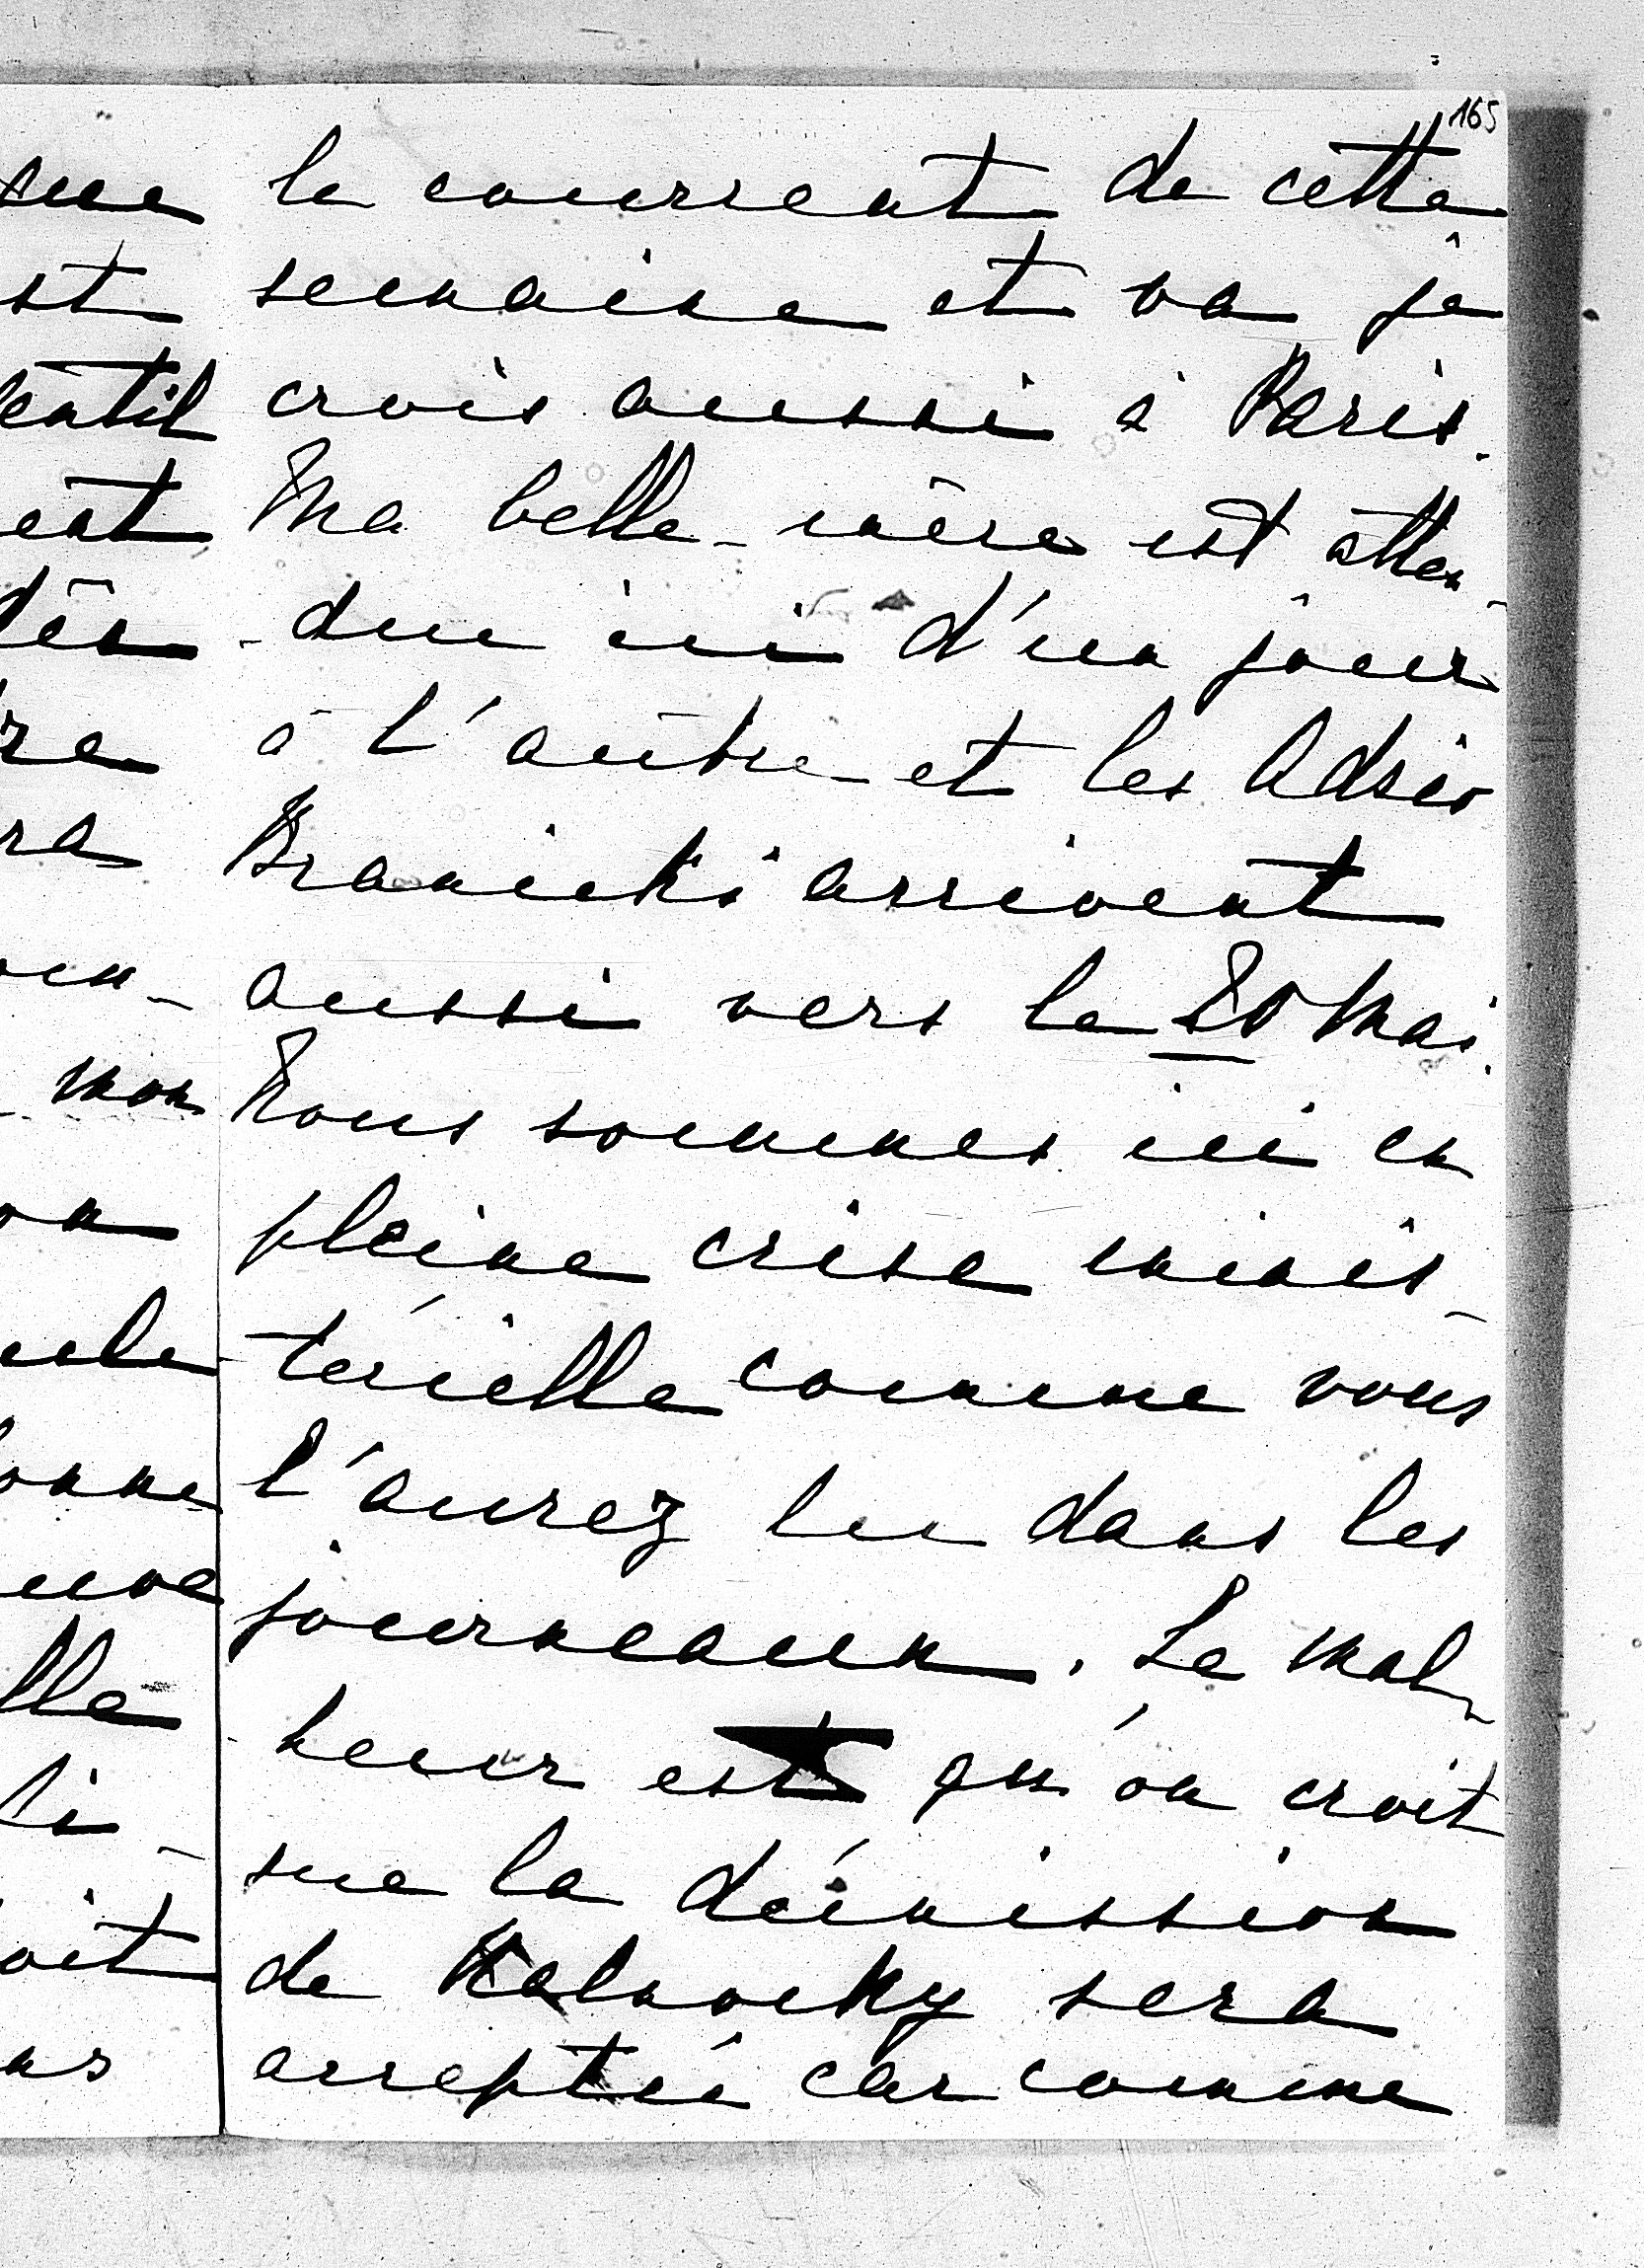 165
le courrent de cette
semaine et va je
crois aussi à Paris.
Ma belle-mère est atten-
-due ici d'un jour
à l'autre et les Adsio
Branicki arrivent
aussi vers le 20 Mai.
Nous sommes ici en
pleine crise minis-
terielle comme vous
l'aurez lu dans les
journeaux. Le mal-
-heur est qu'on croit
que la démission
de Kalnocky sera
acceptée car comme